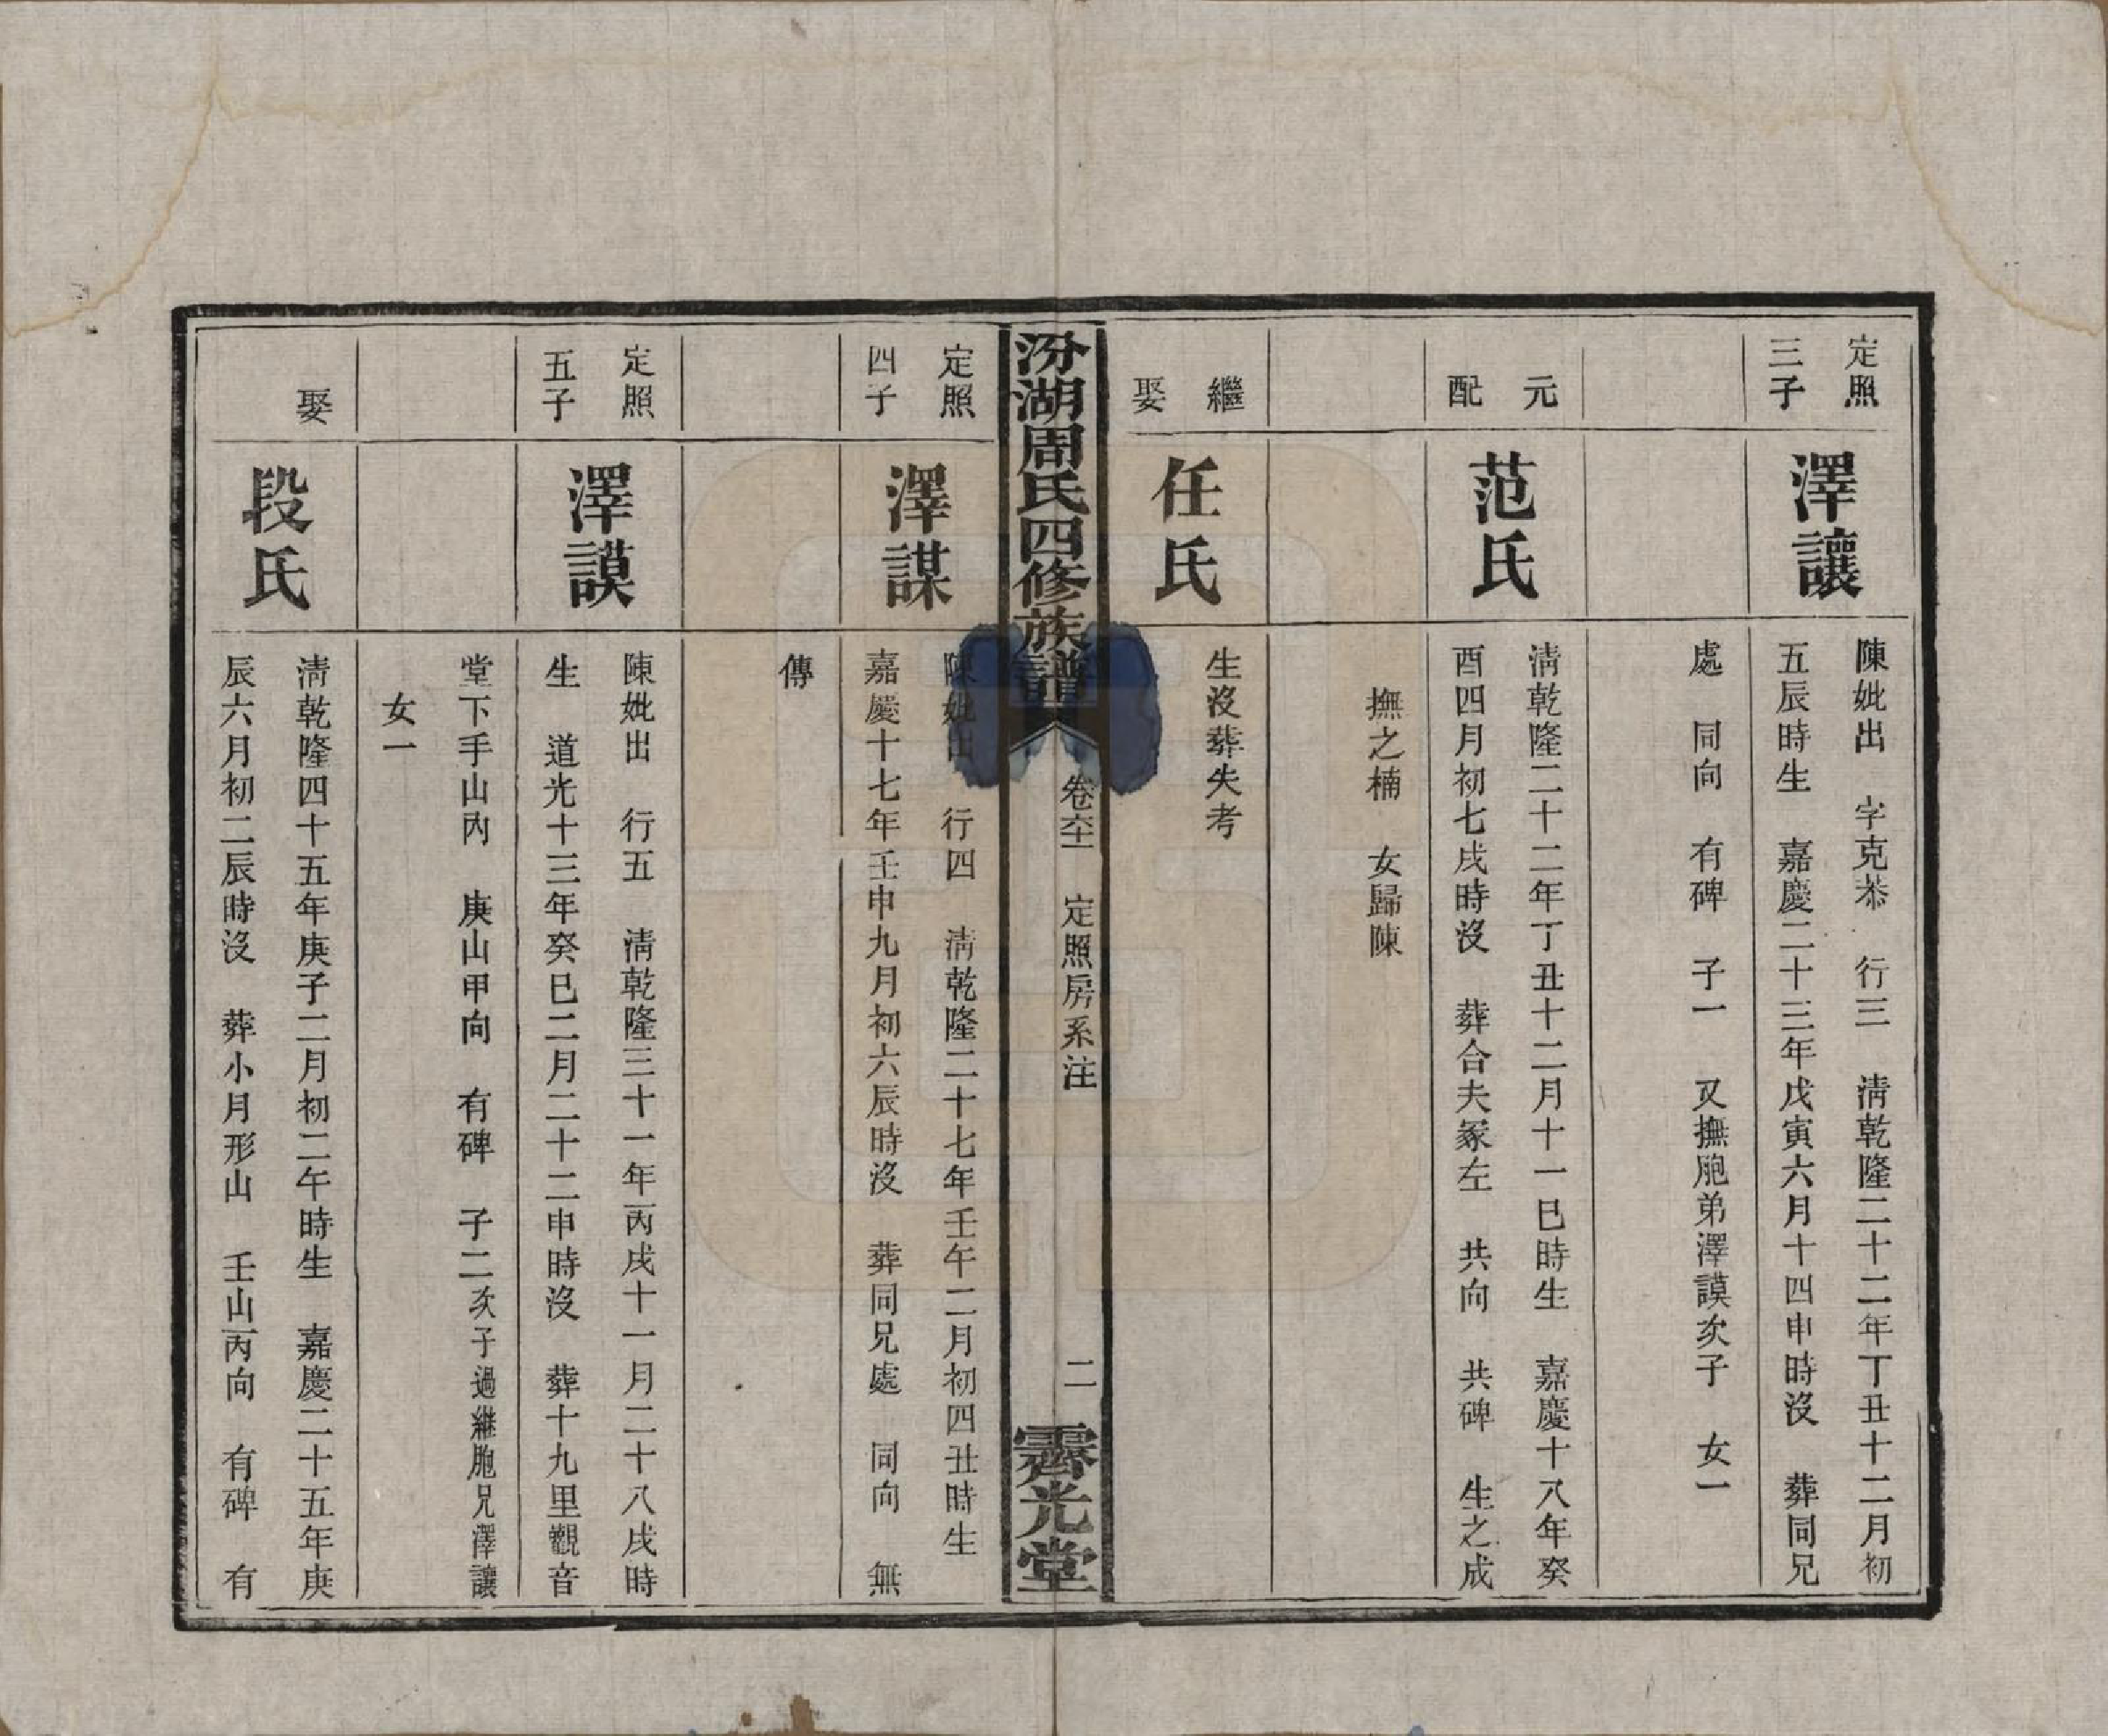 定照
三子
澤讓
陳妣出　字克恭　行三　淸乾隆二十二年丁丑十二月初
五辰時生　嘉慶二十三年戊寅六月十四申時沒　葬同兄
處　同向　有碑　子一　又撫胞弟澤謨次子　女一
元
配
范氏
淸乾隆二十二年丁丑十二月十一巳時生　嘉慶十八年癸
酉四月初七戌時沒　葬合夫冢左　共向　共碑　生之成
撫之楠　女歸陳
繼
娶
任氏
生沒葬失考
汾湖周氏四修族譜
卷六十一　定照房系注
二
霽光堂
定照
四子
澤謀
陳妣出　行四　淸乾隆二十七年壬午二月初四丑時生
嘉慶十七年壬申九月初六辰時沒　葬同兄處　同向　無
傳
定照
五子
澤謨
陳妣出　行五　淸乾隆三十一年丙戌十一月二十八戌時
生　道光十三年癸巳二月二十二申時沒　葬十九里觀音
堂下手山內　庚山甲向　有碑　子二次子過繼胞兄澤讓
女一
娶
段氏
淸乾隆四十五年庚子二月初二午時生　嘉慶二十五年庚
辰六月初二辰時沒　葬小月形山　壬山丙向　有碑　有